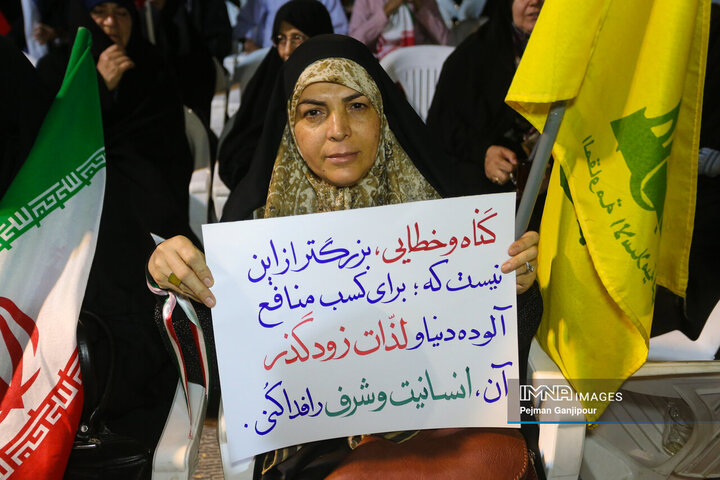 گناه و خطایی، بزرگتر از این
نیست که؛ برای کسب منافع
آلوده دنیا و لذّات زودگذر
آن، انسانیت و شرف را فدا کنی.
IMNA IMAGES
Pejman Ganjipour